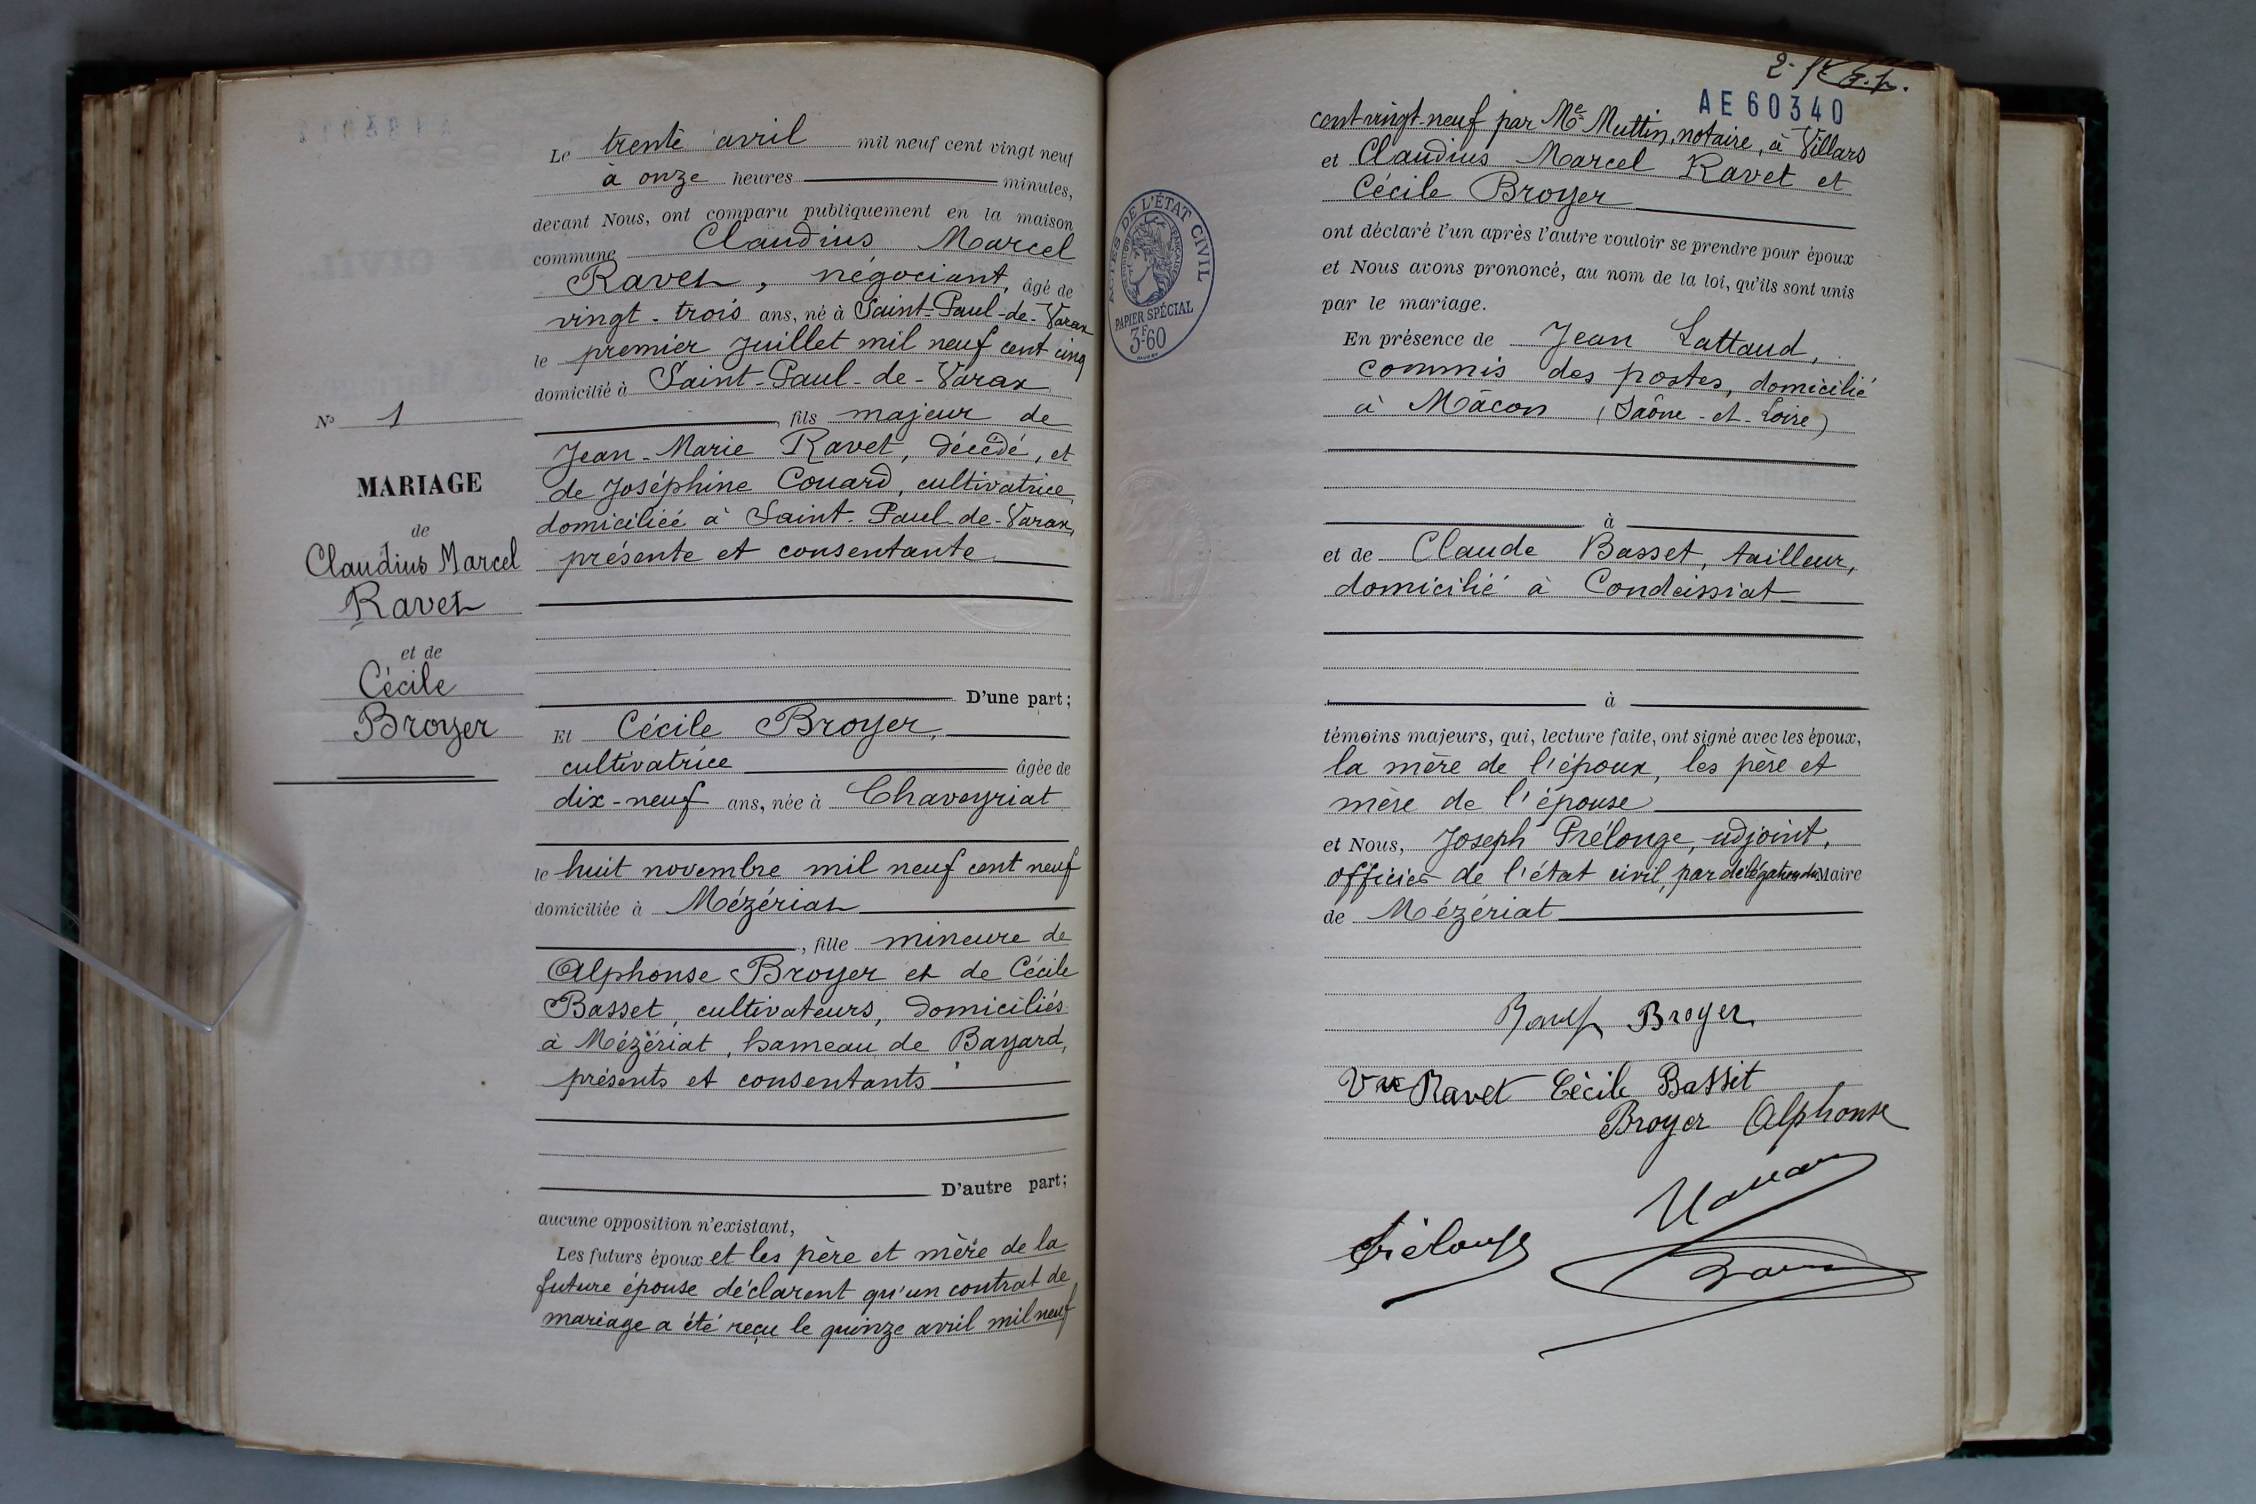 N° 1
MARIAGE
de
Claudius Marcel
Ravet
et de
Cécile
Broyer
Le trente avril mil neuf cent vingt neuf
à onze heures minutes,
devant Nous, ont comparu publiquement en la maison
commune Claudius Marcel
Ravet, négociant, âgé de
vingt-trois ans, né à Saint-Paul-de-Varax
le premier Juillet mil neuf cent cinq
domicilié à Saint-Paul-de-Varax
, fils majeur de
Jean-Marie Ravet, décédé, et
de Joséphine Couard, cultivatrice,
domiciliée à Saint-Paul-de-Varax,
présente et consentante
D'une part;
Et Cécile Broyer,
cultivatrice âgée de
dix-neuf ans, née à Chaveyriat
le huit novembre mil neuf cent neuf
domiciliée à Mézériat
, fille mineure de
Alphonse Broyer et de Cécile
Basset, cultivateurs, domiciliés
à Mézériat, hameau de Bayard,
présents et consentants
D'autre part;
aucune opposition n'existant,
Les futurs époux et les père et mère de la
future épouse déclarent qu'un contrat de
mariage a été reçu le quinze avril mil neuf
2-
AE 60340
cent vingt neuf par Me Muttin, notaire, à Villars
et Claudius Marcel Ravet et
Cécile Broyer
ont déclaré l'un après l'autre vouloir se prendre pour époux
et Nous avons prononcé, au nom de la loi, qu'ils sont unis
par le mariage.
ACTES DE L'ÉTAT CIVIL
PAPIER SPÉCIAL
3F60
En présence de Jean Lattaud,
commis des postes, domicilié
à Mâcon (Saône-et-Loire)
à
et de Claude Basset, tailleur,
domicilié à Condeissiat
à
témoins majeurs, qui, lecture faite, ont signé avec les époux,
la mère de l'époux, les père et
mère de l'épouse
et Nous, Joseph Prélonge, adjoint,
officier de l'état civil, par délégation du Maire
de Mézériat
Ravet Broyer
Vve Ravet Cécile Basset
Broyer Alphonse
Prélonge